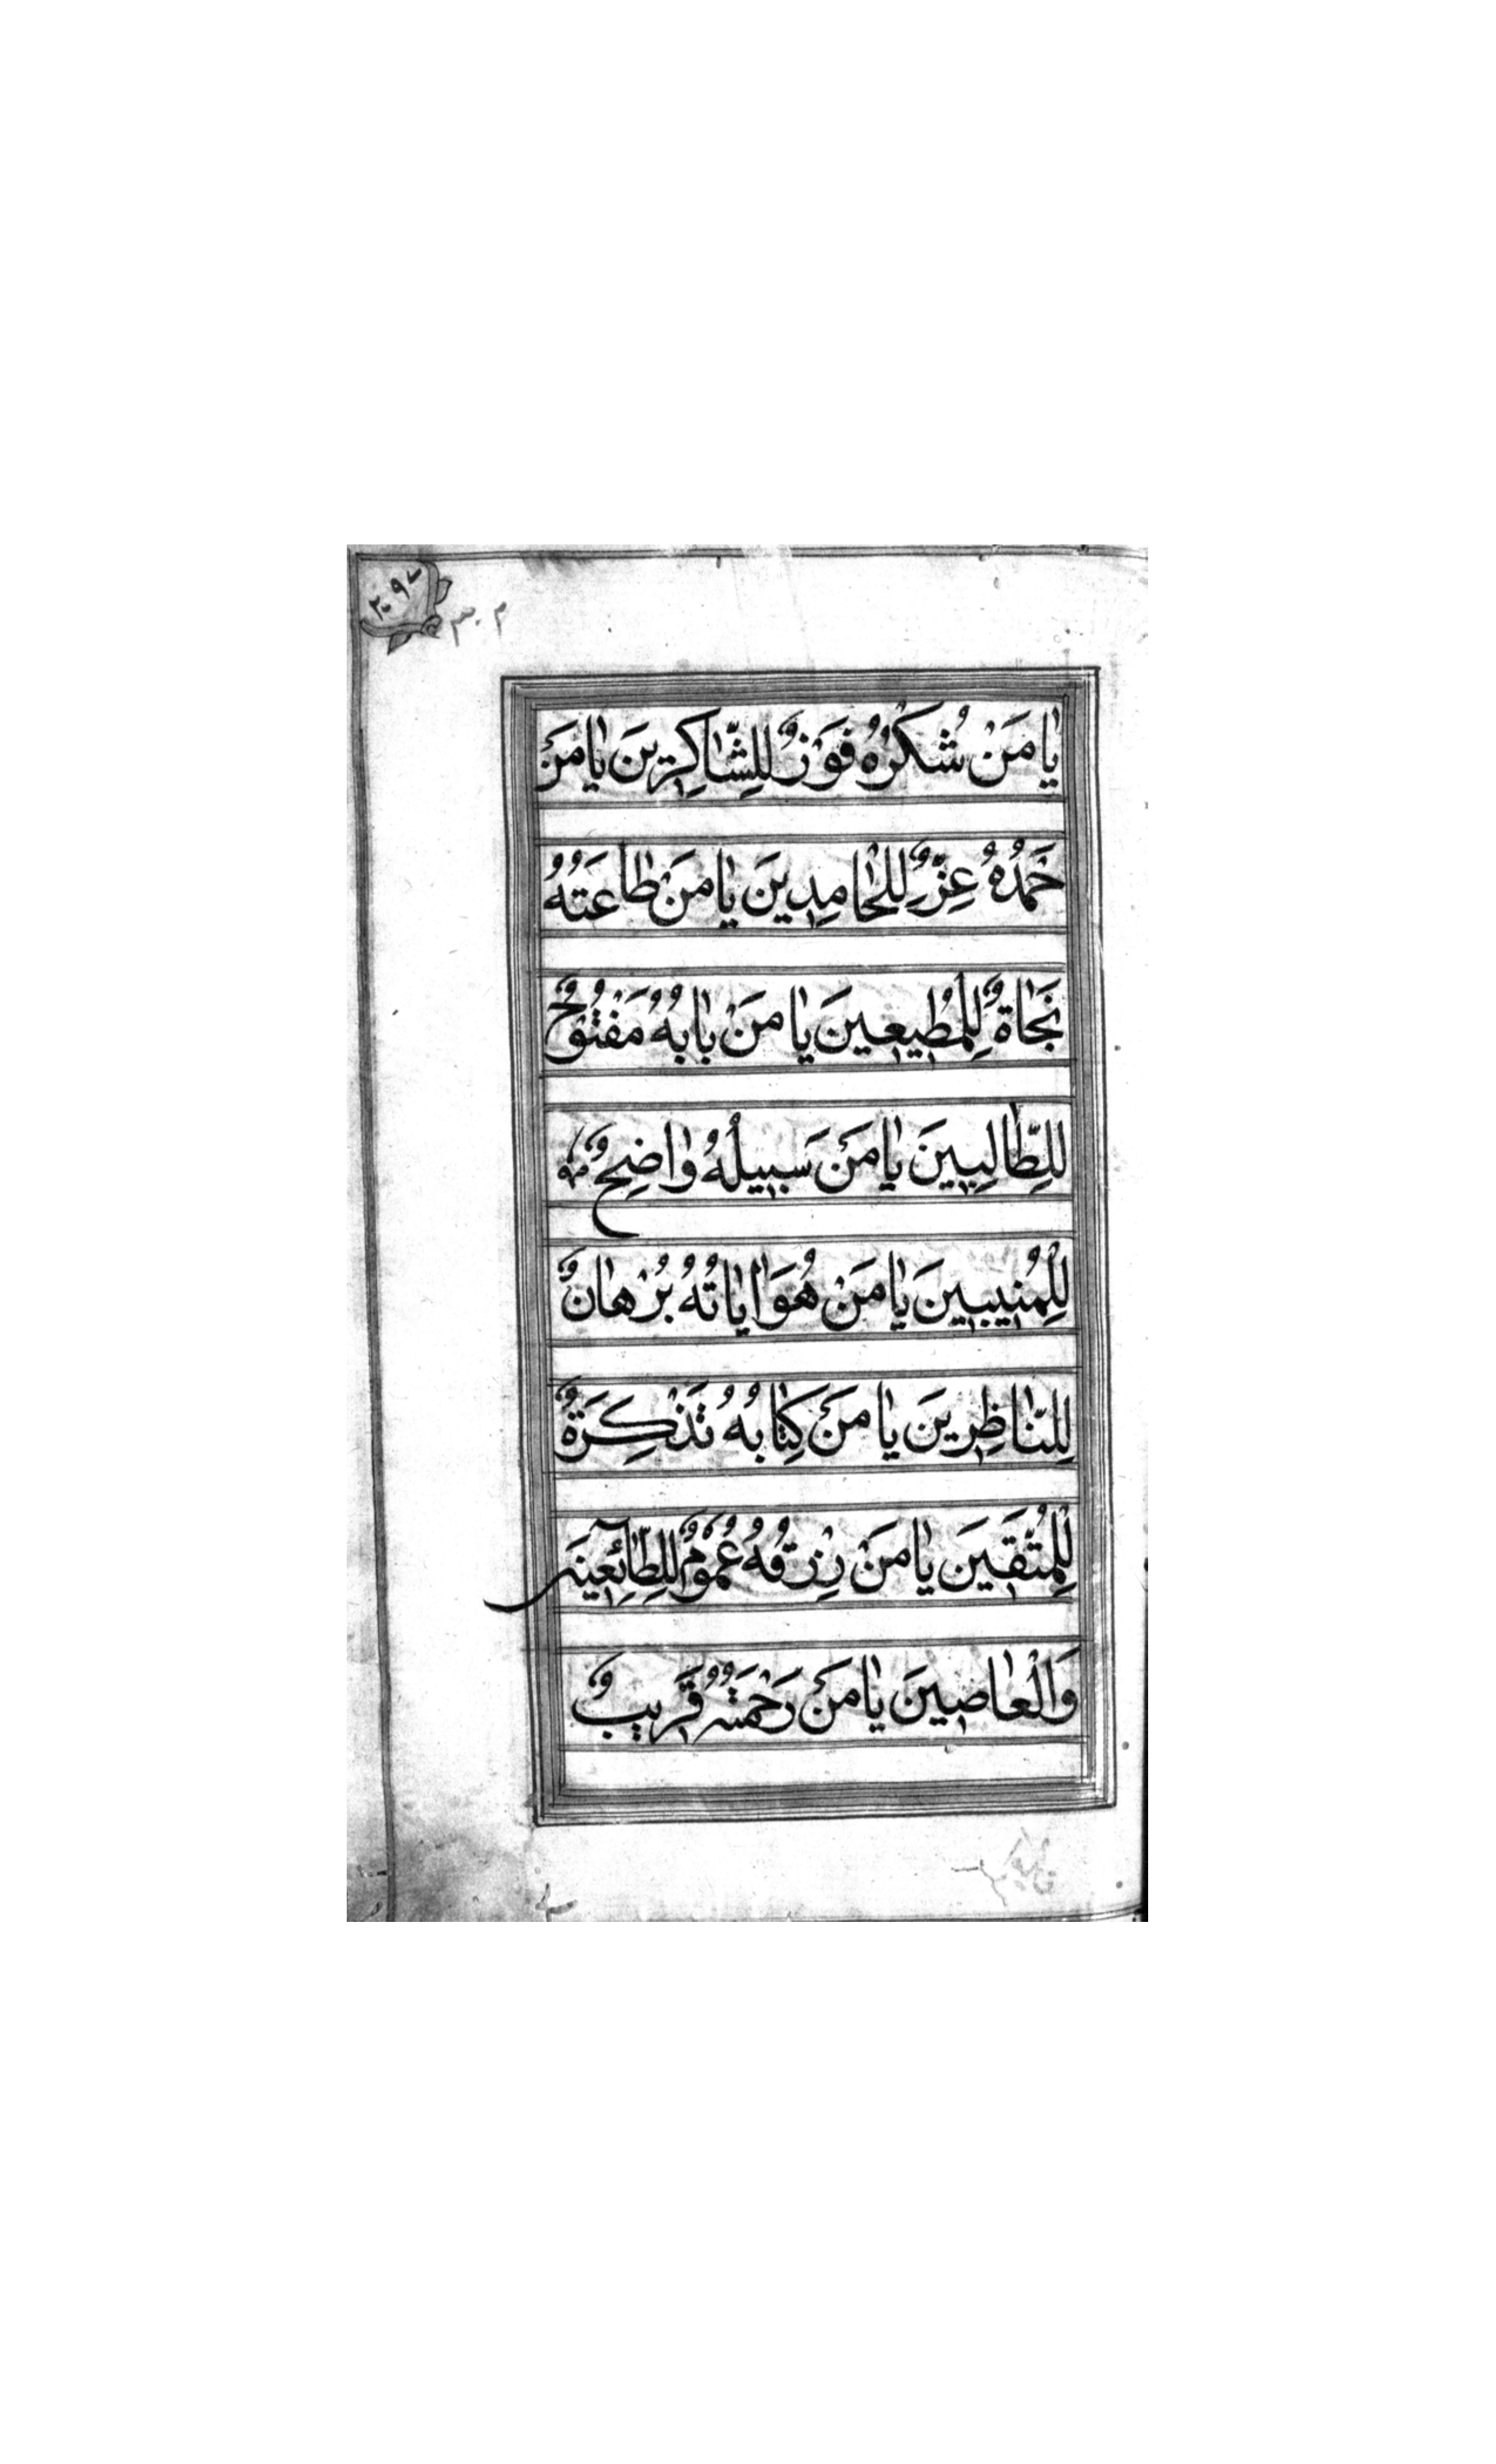 ٢٠٩
٣٠٢
يٰا مَنْ شُكْرُهُ فَوْزٌ لِلشّٰاكِرِينَ يٰا مَنْ
حَمْدُهُ عِزٌّ لِلْحٰامِدِينَ يٰا مَنْ طٰاعَتُهُ
نَجٰاةٌ لِلْمُطِيعِينَ يٰا مَنْ بٰابُهُ مَفْتُوحٌ
لِلطّٰالِبِينَ يٰا مَنْ سَبِيلُهُ وٰاضِحٌ
لِلْمُنِيبِينَ يٰا مَنْ هُوَ اٰيٰاتُهُ بُرْهٰانٌ
لِلنّٰاظِرِينَ يٰا مَنْ كِتٰابُهُ تَذْكِرَةٌ
لِلْمُتَّقِينَ يٰا مَنْ رِزْقُهُ عُمُومٌ لِلطّٰائِعِينَ
وَالْعٰاصِينَ يٰا مَنْ رَحْمَتُهُ قَرِيبٌ